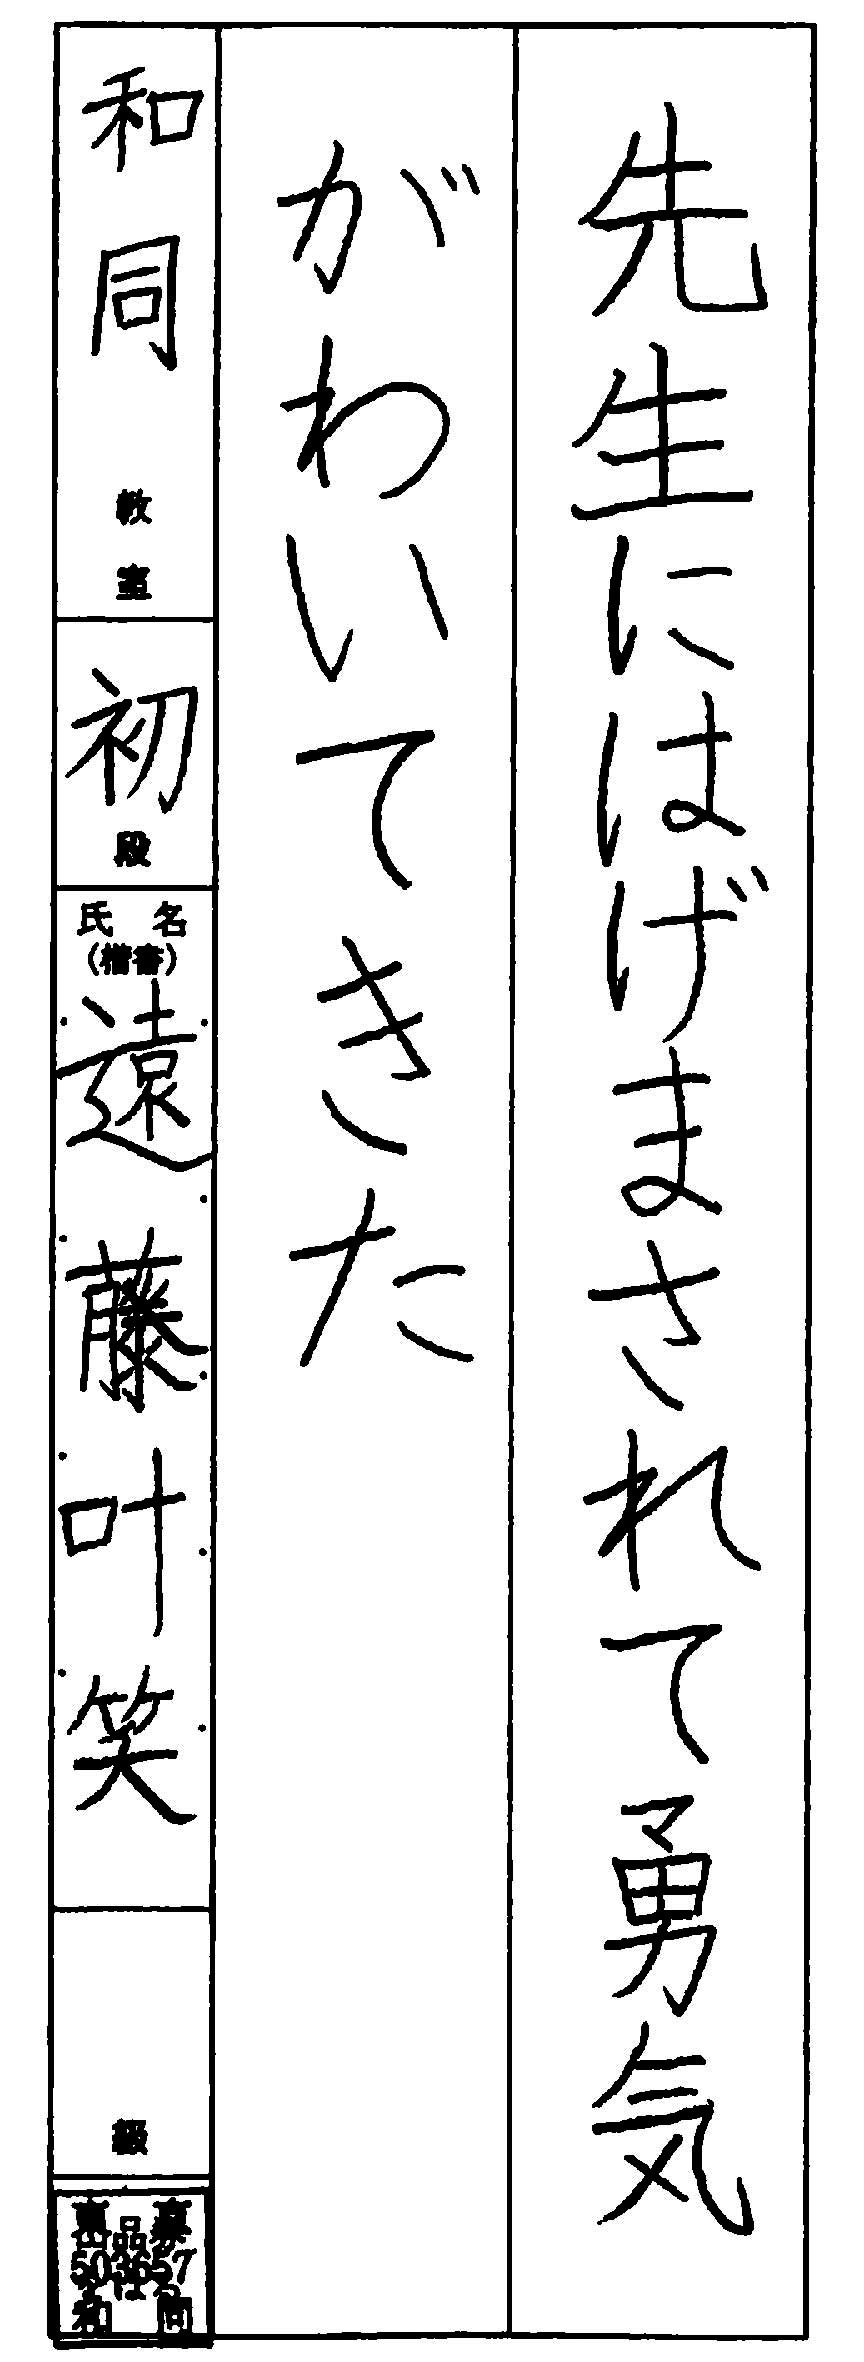 先生にはげまされて勇気
がわいてきた
和同教室
初段
氏名
(楷書)
遠藤叶笑
級
出品券
503657
和同